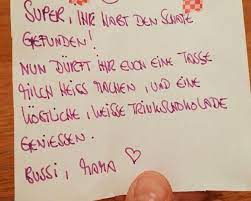 SUPER, IHR HABT DEN SCHATZ
GEFUNDEN!
NUN DÜRFT IHR EUCH EINE TASSE
MILCH HEISS MACHEN, UND EINE
KÖSTLICHE, WEISSE TRINKSCHOKOLADE
GENIESSEN.
BUSSI, MAMA ♡